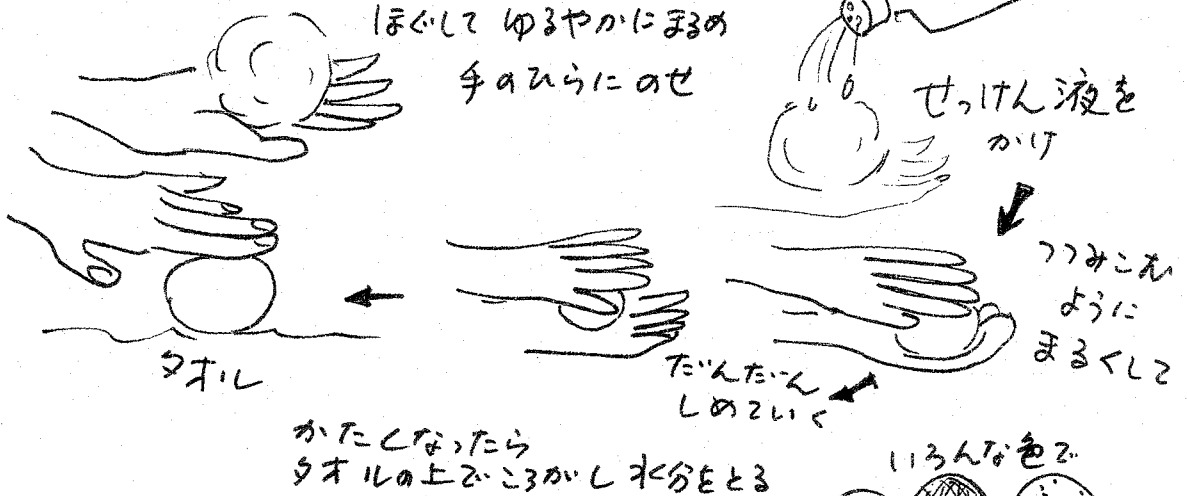 ほぐして ゆるやかにまるめ
手のひらにのせ
せっけん液を
かけ
つつみこむ
ように
まるくして
だんだん
しめていく
タオル
かたくなったら
タオルの上でころがし水分をとる
いろんな色で